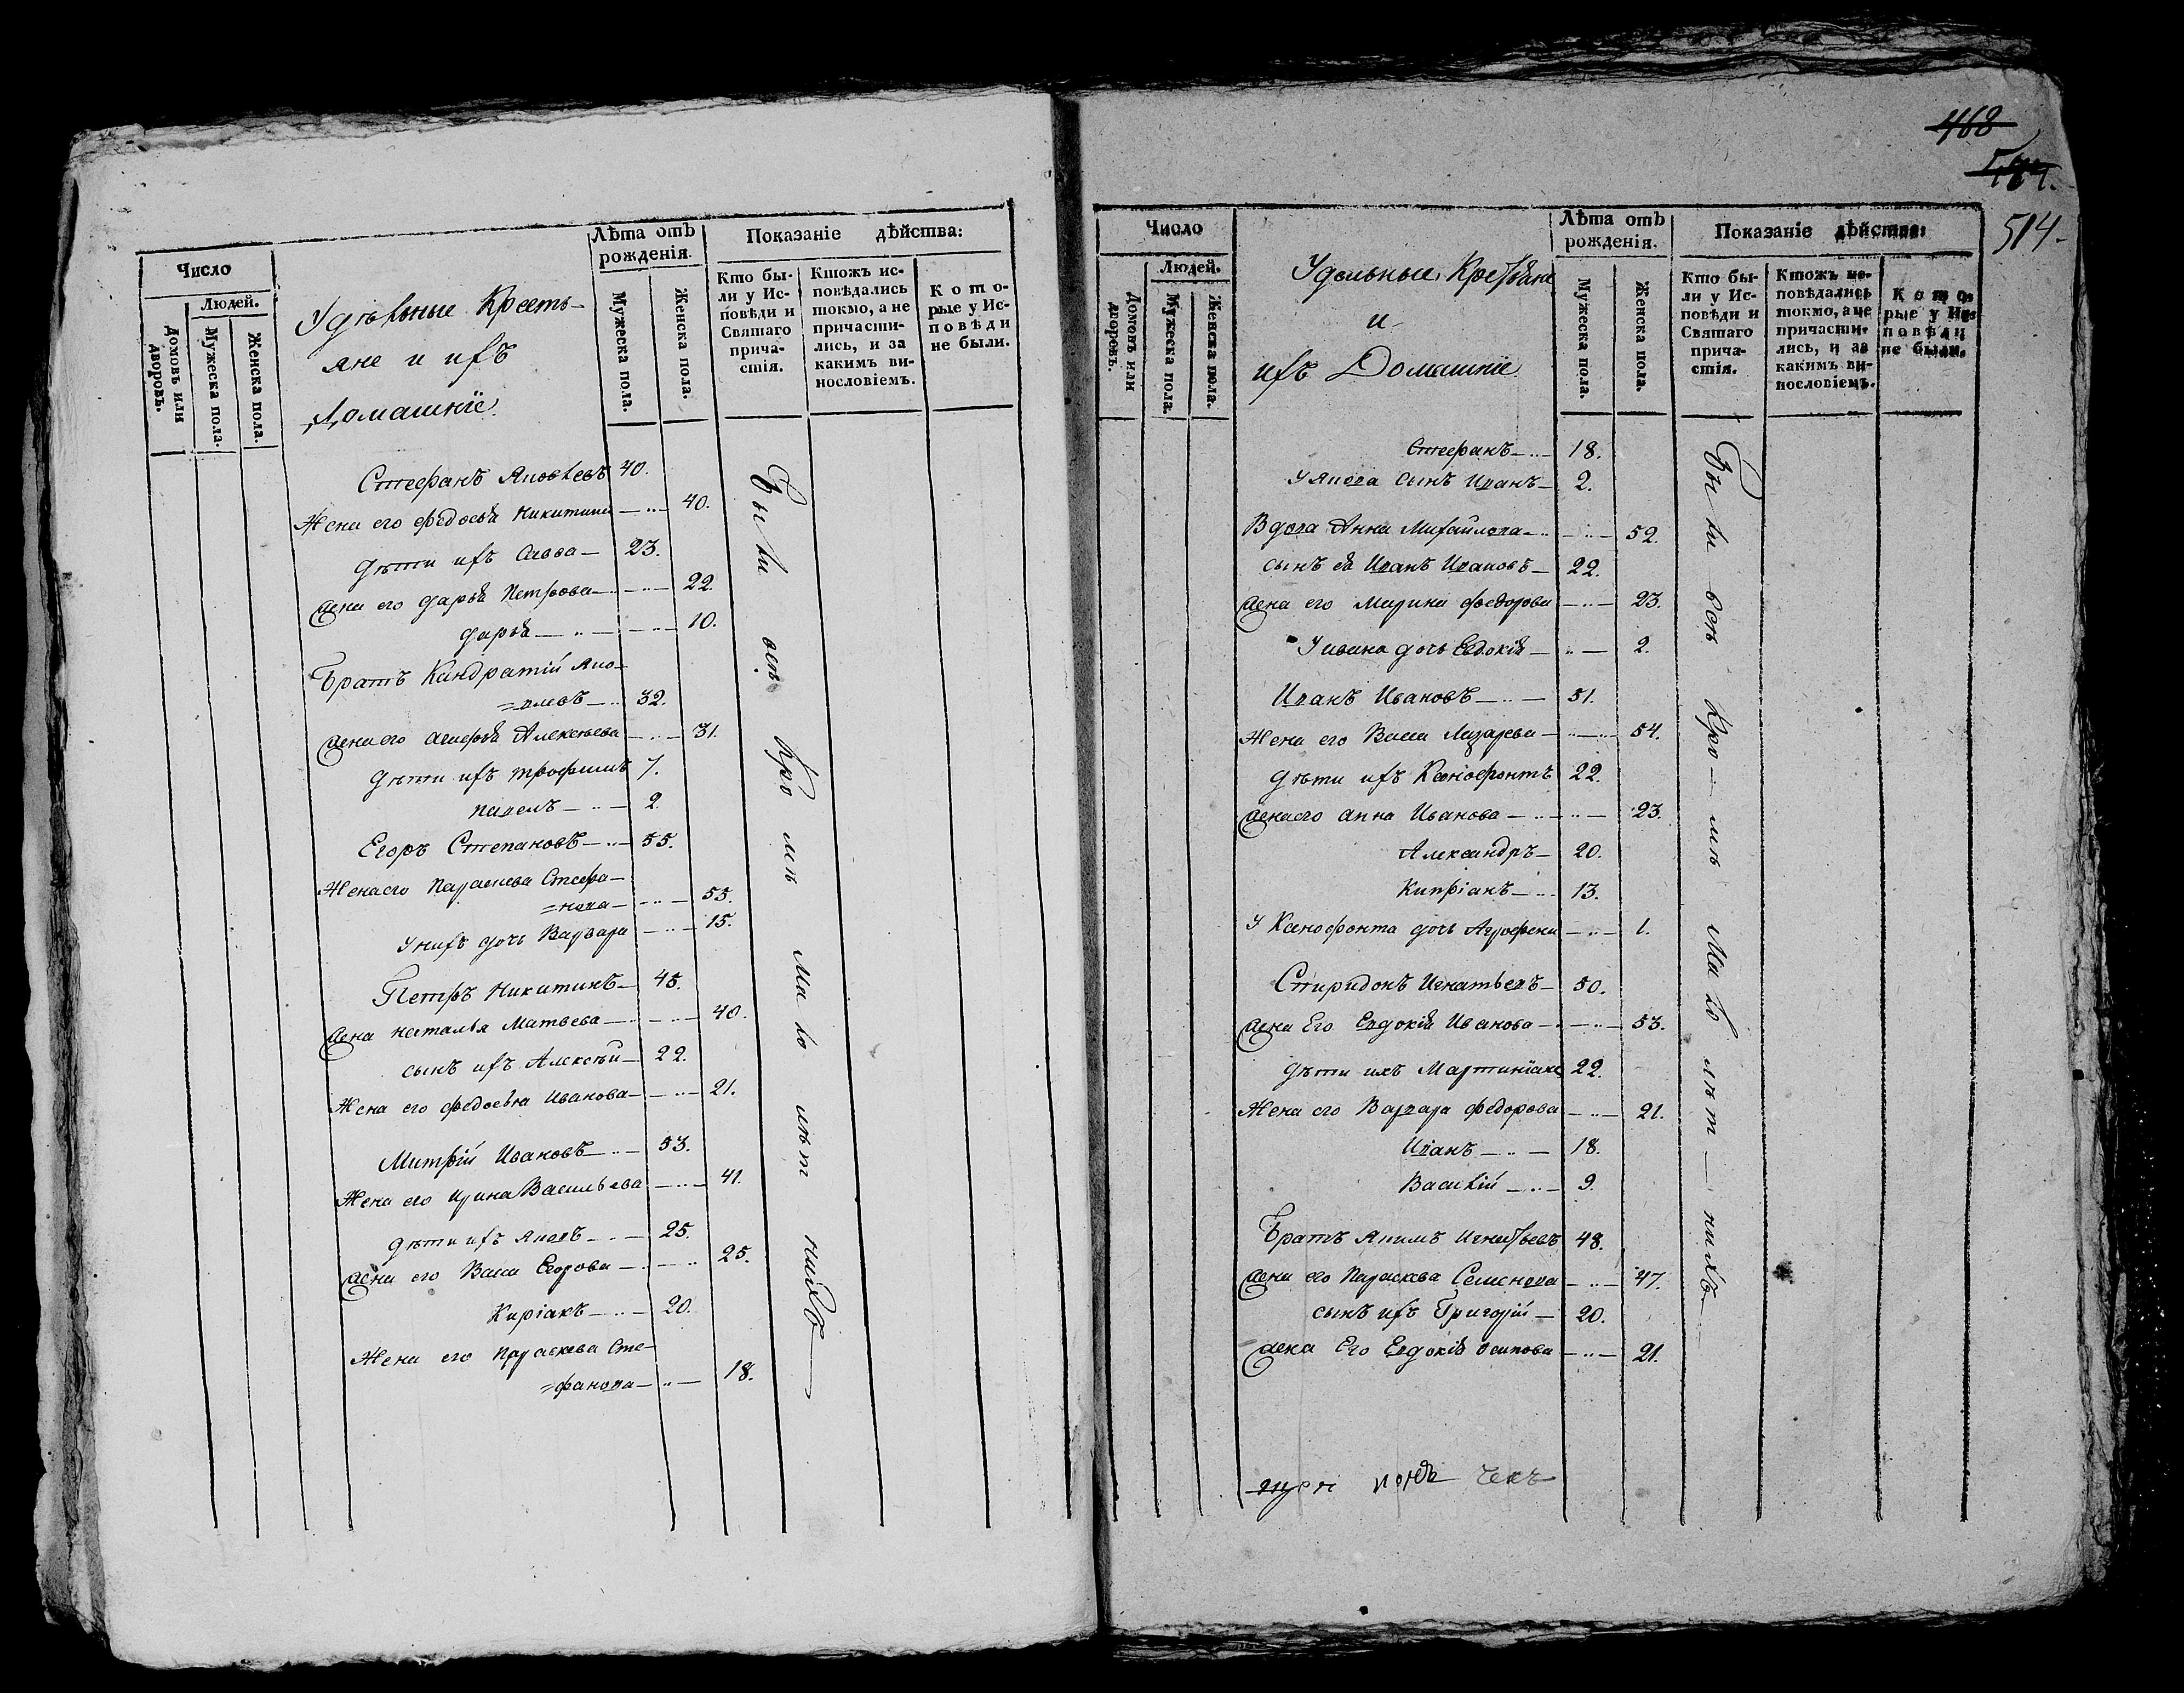 Число
Людей.
Домовъ или дворовъ.
Мужеска пола.
Женска пола.
Удѣльные Кресть-
яне и ихъ
Домашніе.
Лѣта отъ рожденія.
Мужеска пола.
Женска пола.
Показаніе дѣйства:
Кто бы-
ли у Ис-
повѣди и
Святаго
прича-
стія.
Ктожъ ис-
повѣдались
токмо, а не
причасти-
лись, и за
какимъ ви-
нословіемъ.
Кото-
рые у Ис-
повѣди
не были.
Стефанъ Яковлевъ 40.
Жена его Федосья Никитина 40.
Дѣти ихъ Савва 23.
Жена его Дарья Петрова 22.
Дарья 10.
Братъ Кандратій Яко-
=влевъ 32.
Жена его Агафья Алексѣева 31.
Дѣти ихъ Трофимъ 7.
Павелъ 2.
Егоръ Степановъ 55.
Жена его Параскева Стефа-
=нова 55.
У нихъ дочь Варвара 15.
Петръ Никитинъ 45.
Жена Наталья Матвеева 40.
сынъ ихъ Алексѣй 22.
Жена его Федосья Иванова 21.
Митрій Ивановъ 53.
Жена его Ирина Васильева 41.
Дѣти ихъ Яковъ 25.
Жена его Васса Егорова 25.
Киріакъ 20.
Жена его Параскева Сте-
=фанова 18.
Были всѣ кромѣ малолѣтнихъ
468
514.
Число
Людей.
Домовъ или дворовъ.
Мужеска пола.
Женска пола.
Удельные Крестьяне
и
ихъ Домашніе
Лѣта отъ рожденія.
Мужеска пола.
Женска пола.
Показаніе дѣйства:
Кто бы-
ли у Ис-
повѣди и
Святаго
прича-
стія.
Ктожъ ис-
повѣдались
токмо, а не
причасти-
лись, и за
какимъ ви-
нословіемъ.
Кото-
рые у Ис-
повѣди
не были.
Стефанъ 18.
У Якова сынъ Иванъ 2.
Вдова Анна Михайлова 52.
сынъ ея Иванъ Ивановъ 22.
Жена его Марина Федорова 23.
У Ивана дочь Евдокія 2.
Иванъ Ивановъ 51.
Жена его Васса Лазарева 54.
Дѣти ихъ Ксенофонтъ 22.
Жена его Анна Иванова 23.
Александръ 20.
Кипріанъ 13.
У Ксенофонта дочь Агрофена 1.
Спиридонъ Игнатьевъ 50.
Жена Его Евдокія Иванова 53.
Дѣти ихъ Мартиніанъ 22.
Жена его Варвара Федорова 21.
Иванъ 18.
Василій 9.
Братъ Якимъ Игнатьевъ 48.
Жена его Параскева Семенова 47.
сынъ ихъ Григорій 20.
Жена Его Евдокія Осипова 21.
Были всѣ кромѣ малолѣтнихъ